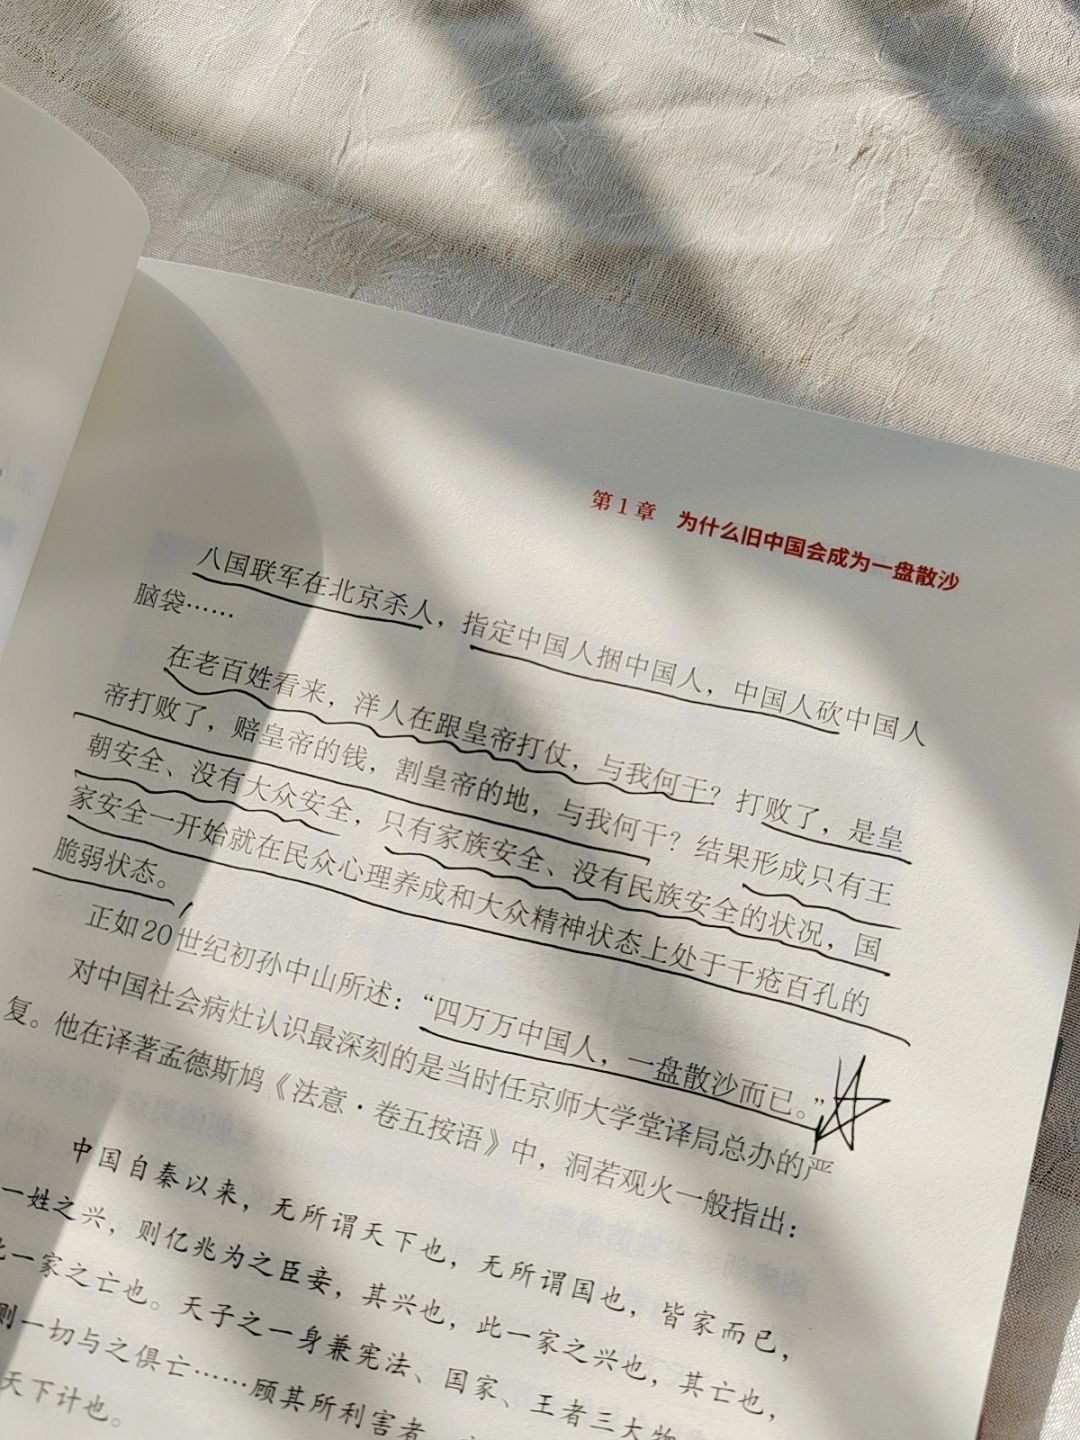 第1章 为什么旧中国会成为一盘散沙
八国联军在北京杀人，指定中国人捆中国人，中国人砍中国人
脑袋……
在老百姓看来，洋人在跟皇帝打仗，与我何干？打败了，是皇
帝打败了，赔皇帝的钱，割皇帝的地，与我何干？结果形成只有王
朝安全、没有大众安全，只有家族安全、没有民族安全的状况，国
家安全一开始就在民众心理养成和大众精神状态上处于千疮百孔的
脆弱状态。
正如20世纪初孙中山所述：“四万万中国人，一盘散沙而已。”
对中国社会病灶认识最深刻的是当时任京师大学堂译局总办的严
复。他在译著孟德斯鸠《法意·卷五按语》中，洞若观火一般指出：
中国自秦以来，无所谓天下也，无所谓国也，皆家而已，
一姓之兴，则亿兆为之臣妾，其兴也，此一家之兴也，其亡也，
此一家之亡也。天子之一身兼宪法、国家、王者三大物
则一切与之俱亡……顾其所利害者
天下计也。